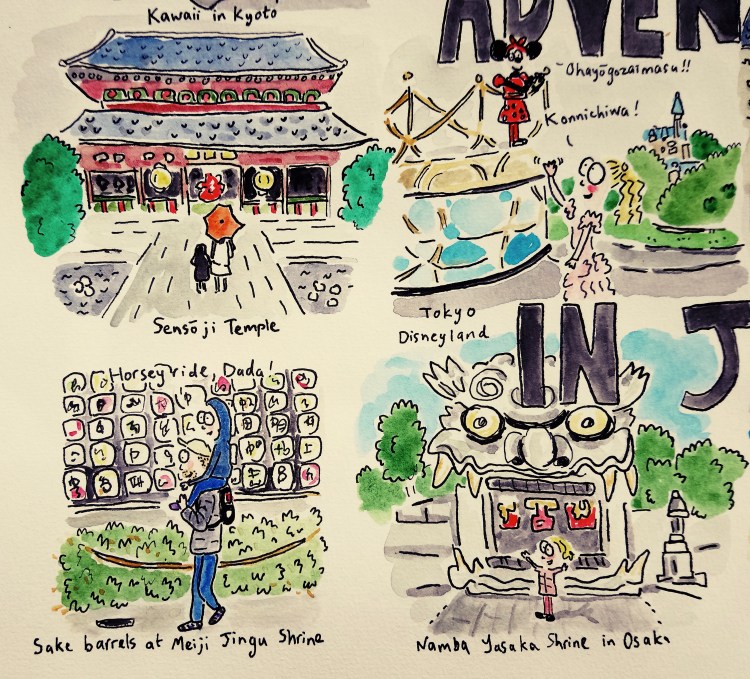 Kawaii in Kyoto
ADVEN
Ohayōgozaimasu!!
Konnichiwa!
Sensōji Temple
Tokyo
Disneyland
IN J
Horsey ride, Dada!
Sake barrels at Meiji Jingu Shrine
Namba Yasaka Shrine in Osaka